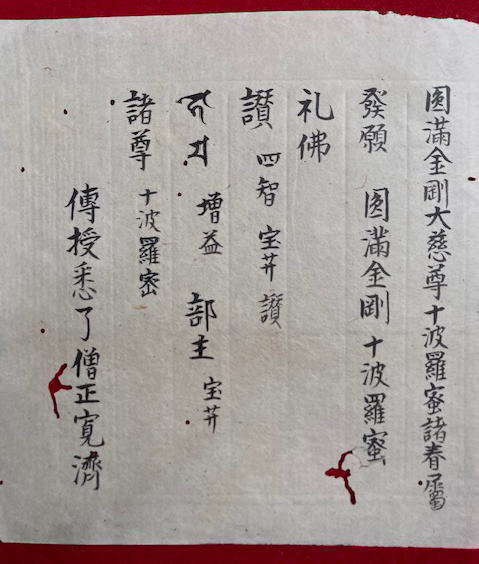 圓滿金剛大慈尊十波羅蜜諸眷屬
發願 圓滿金剛十波羅蜜
礼佛
讃 四智 宝𦬇 讃
増益 部主 宝𦬇
諸尊 十波羅密
傳授悉了僧正寛濟